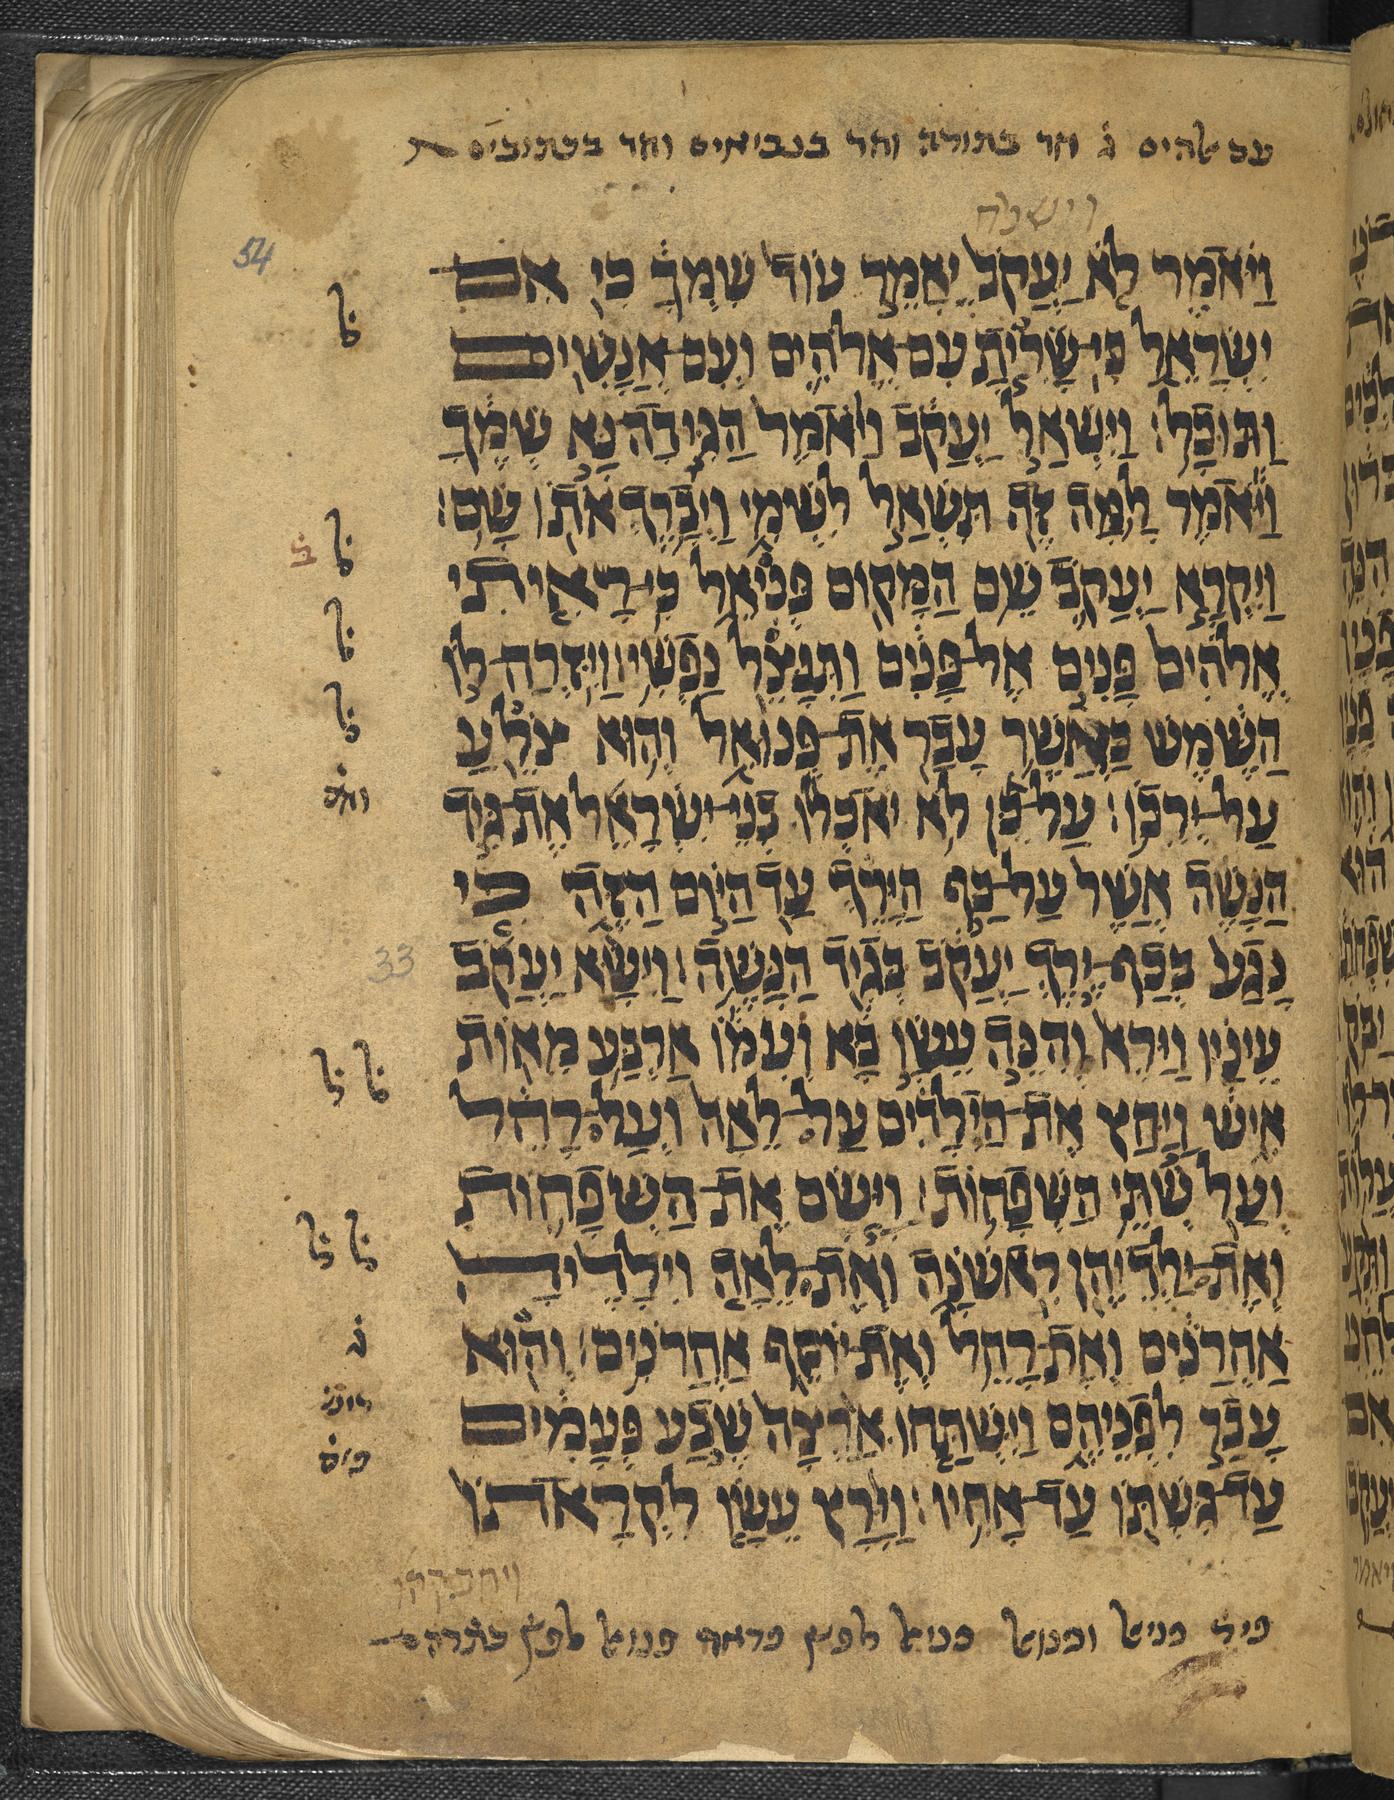 עם אלהים ג֗ חד בתורה וחד בנביאים וחד בכתובים
וישלח
54
וַיֹּאמֶר לֹא יַעֲקֹב יֵאָמֵר עוֹד שִׁמְךָ כִּי אִם
יִשְׂרָאֵל כִּי־שָׂרִיתָ עִם־אֱלֹהִים וְעִם־אֲנָשִׁים
וַתּוּכָל׃ וַיִּשְׁאַל יַעֲקֹב וַיֹּאמֶר הַגִּידָה־נָּא שְׁמֶךָ
וַיֹּאמֶר לָמָּה זֶּה תִּשְׁאַל לִשְׁמִי וַיְבָרֶךְ אֹתוֹ שָׁם׃
וַיִּקְרָא יַעֲקֹב שֵׁם הַמָּקוֹם פְּנִיאֵל כִּי־רָאִיתִי
אֱלֹהִים פָּנִים אֶל־פָּנִים וַתִּנָּצֵל נַפְשִׁי׃ וַיִּזְרַח־לוֹ
הַשֶּׁמֶשׁ כַּאֲשֶׁר עָבַר אֶת־פְּנוּאֵל וְהוּא צֹלֵעַ
עַל־יְרֵכוֹ׃ עַל־כֵּן לֹא יֹאכְלוּ בְנֵי־יִשְׂרָאֵל אֶת־גִּיד
הַנָּשֶׁה אֲשֶׁר עַל־כַּף הַיָּרֵךְ עַד הַיּוֹם הַזֶּה כִּי
נָגַע בְּכַף־יֶרֶךְ יַעֲקֹב בְּגִיד הַנָּשֶׁה׃ וַיִּשָּׂא יַעֲקֹב
33
עֵינָיו וַיַּרְא וְהִנֵּה עֵשָׂו בָּא וְעִמּוֹ אַרְבַּע מֵאוֹת
אִישׁ וַיַּחַץ אֶת־הַיְלָדִים עַל־לֵאָה וְעַל־רָחֵל
וְעַל שְׁתֵּי הַשְּׁפָחוֹת׃ וַיָּשֶׂם אֶת־הַשְּׁפָחוֹת
וְאֶת־יַלְדֵיהֶן רִאשֹׁנָה וְאֶת־לֵאָה וִילָדֶיהָ
אַחֲרֹנִים וְאֶת־רָחֵל וְאֶת־יוֹסֵף אַחֲרֹנִים׃ וְהוּא
עָבַר לִפְנֵיהֶם וַיִּשְׁתַּחוּ אַרְצָה שֶׁבַע פְּעָמִים
עַד־גִּשְׁתּוֹ עַד־אָחִיו׃ וַיָּרָץ עֵשָׂו לִקְרָאתוֹ
ויחבקהו
פניאל ופנואל פניאל